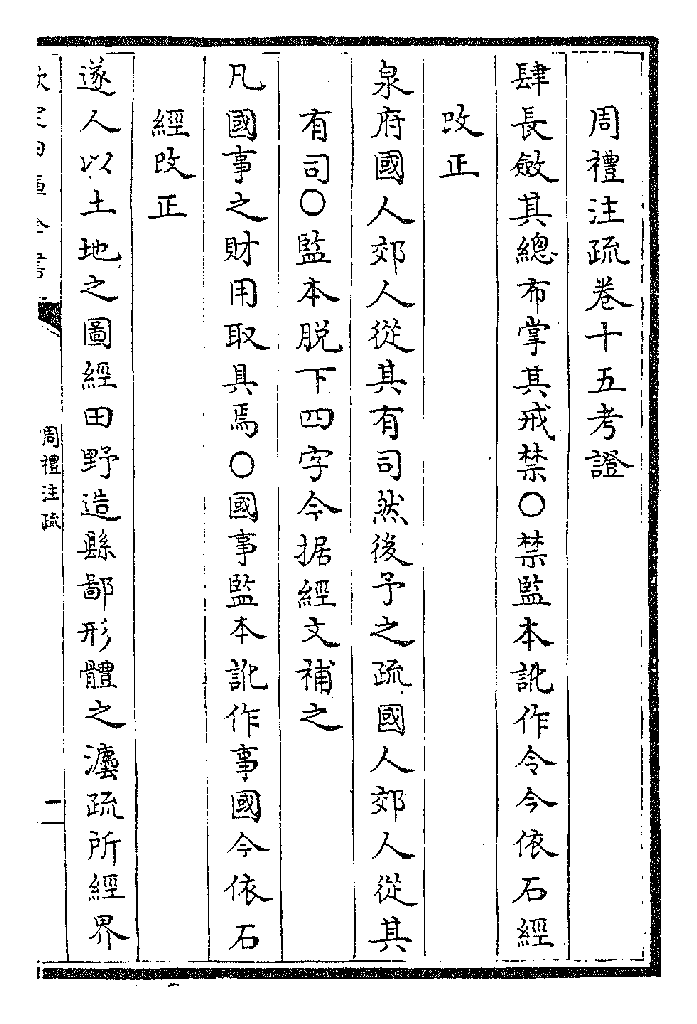 周禮注疏卷十五考證
肆長斂其總布掌其戒禁○禁監本訛作令今依石經
改正
泉府國人郊人從其有司然後予之疏國人郊人從其
有司○監本脱下四字今据經文補之
凡國事之財用取具焉○國事監本訛作事國今依石
經改正
遂人以土地之圖經田野造縣鄙形體之灋疏所經界
周禮注疏
一